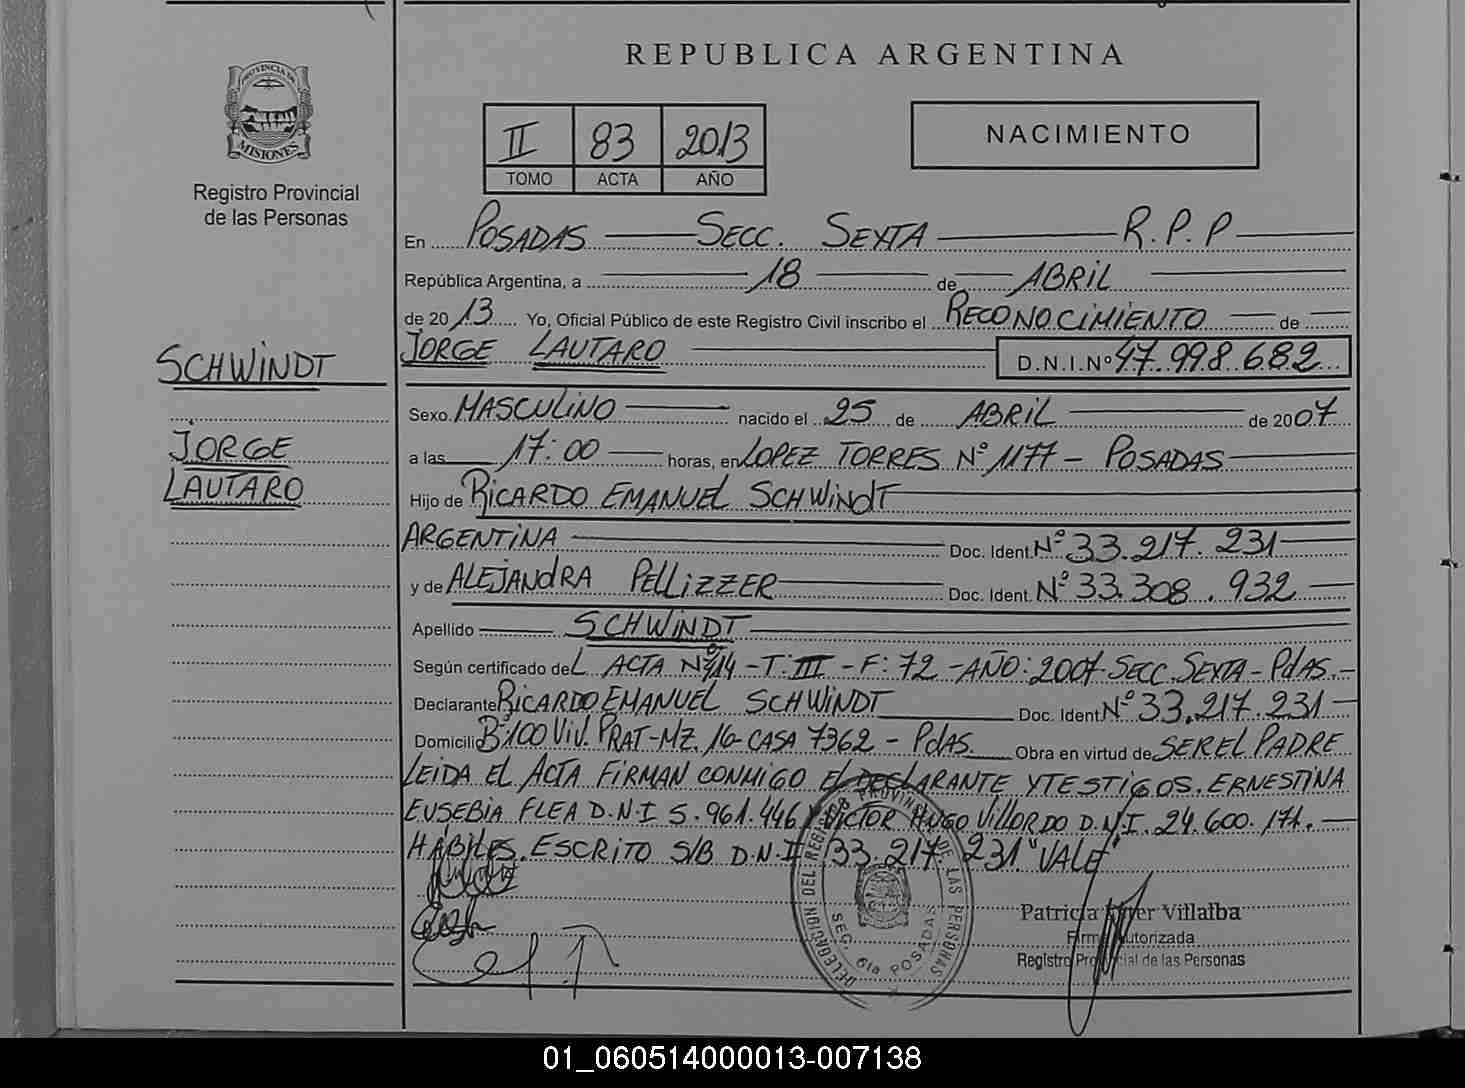 REPUBLICA ARGENTINA
PROVINCIA DE
MISIONES
Registro Provincial
de las Personas
II 83 2013
TOMO ACTA AÑO
NACIMIENTO
En POSADAS SECC. SEXTA R.P.P
República Argentina, a 18 de ABRIL
de 2013 Yo, Oficial Público de este Registro Civil inscribo el RECONOCIMIENTO de
JORGE LAUTARO D.N.I.Nº 47.998.682
SCHWINDT
JORGE
LAUTARO
Sexo MASCULINO nacido el 25 de ABRIL de 2007
a las 17:00 horas, en LOPEZ TORRES Nº 1177 - POSADAS
Hijo de RICARDO EMANUEL SCHWINDT
ARGENTINA Doc. Ident. Nº 33.217.231
y de ALEJANDRA PELLIZZER Doc. Ident. Nº 33.308.932
Apellido SCHWINDT
Según certificado del ACTA Nº 714 - T: III - F: 72 - AÑO: 2007 - SECC. SEXTA - PdAS.-
Declarante RICARDO EMANUEL SCHWINDT Doc. Ident. Nº 33.217.231
Domicilio Bº 100 Viv. PRAT-MZ. 16-CASA 7362 - PdAS. Obra en virtud de SER EL PADRE
LEIDA EL ACTA FIRMAN CONMIGO EL DECLARANTE Y TESTIGOS. ERNESTINA
EUSEBIA FLEA D.N.I 5.961.446 Y VICTOR HUGO VILLORDO D.N.I. 24.600.171.
HABILES. ESCRITO S/B D.N.I 33.217.231 "VALE"
DELEGACION DEL REGISTRO PROVINCIAL DE LAS PERSONAS
SEC. 6ta POSADAS
Patricia Villalba
Firma Autorizada
Registro Provincial de las Personas
01_060514000013-007138